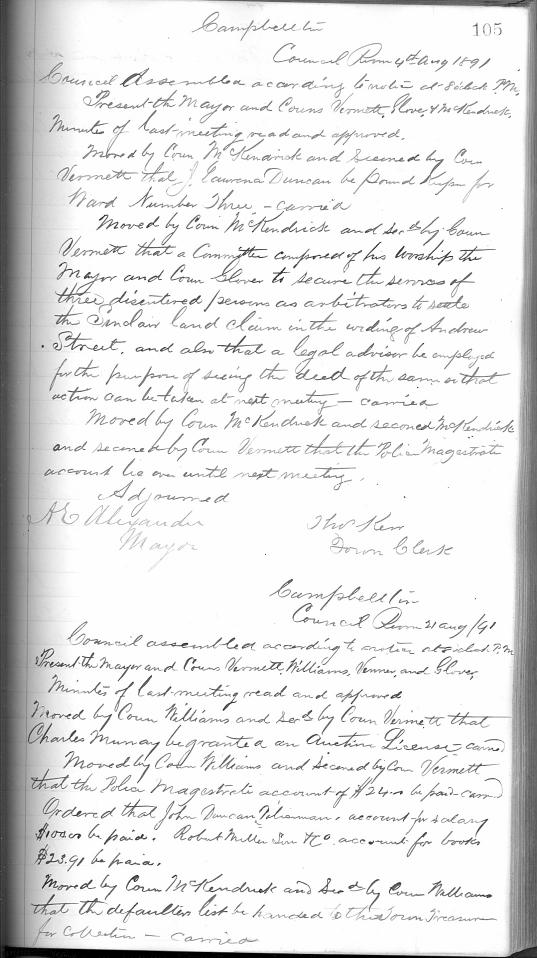 105
Campbellton
Council Room 4th Aug 1891
Council Assembled according to notice at 8 o'clock P.M.
Present the Mayor and Couns Vermett, Glover, & McKendrick.
Minutes of last meeting read and approved.
Moved by Coun McKendrick and Seconed by Coun
Vermett that J. Duncan be Pound Keeper for
Ward Number Three - carried
Moved by Coun McKendrick and Secd by Coun
Vermett that a Committee composed of his worship the
Mayor and Coun Glover to secure the services of
three disentered persons as arbitrators to settle
the Sinclair land claim in the widing of Andrew
Street, and also that a legal advisor be employed
for the purpose of seeing the deed of the same so that
action can be taken at next meeting - carried
Moved by Coun McKendrick and seconed McKendrick
and seconed by Coun Vermett that the Police Magistrate
account lie over until next meeting.
Adjourned
AE Alexander
Mayor
Thos Kerr
Town Clerk
Campbellton
Council Room 21 Aug /91
Council assembled according to notice at o'clock P.M
Present the Mayor and Couns Vermett, Williams, Venner, and Glover,
Minutes of last meeting read and approved
Moved by Coun Williams and Secd by Coun Vermett that
Charles Murray be granted an Auction License carried
Moved by Coun Williams and Seconed by Coun Vermett
that the Police Magistrate account of $24.00 be paid - carried
Ordered that John Duncan Policeman. account for salary
be paid. Robert Miller Son & Co. account for books
$23.91 be paid.
Moved by Coun McKendrick and Secd by Coun Williams
that the defaulters list be handed to the Town Treasurer
for Collection - carried